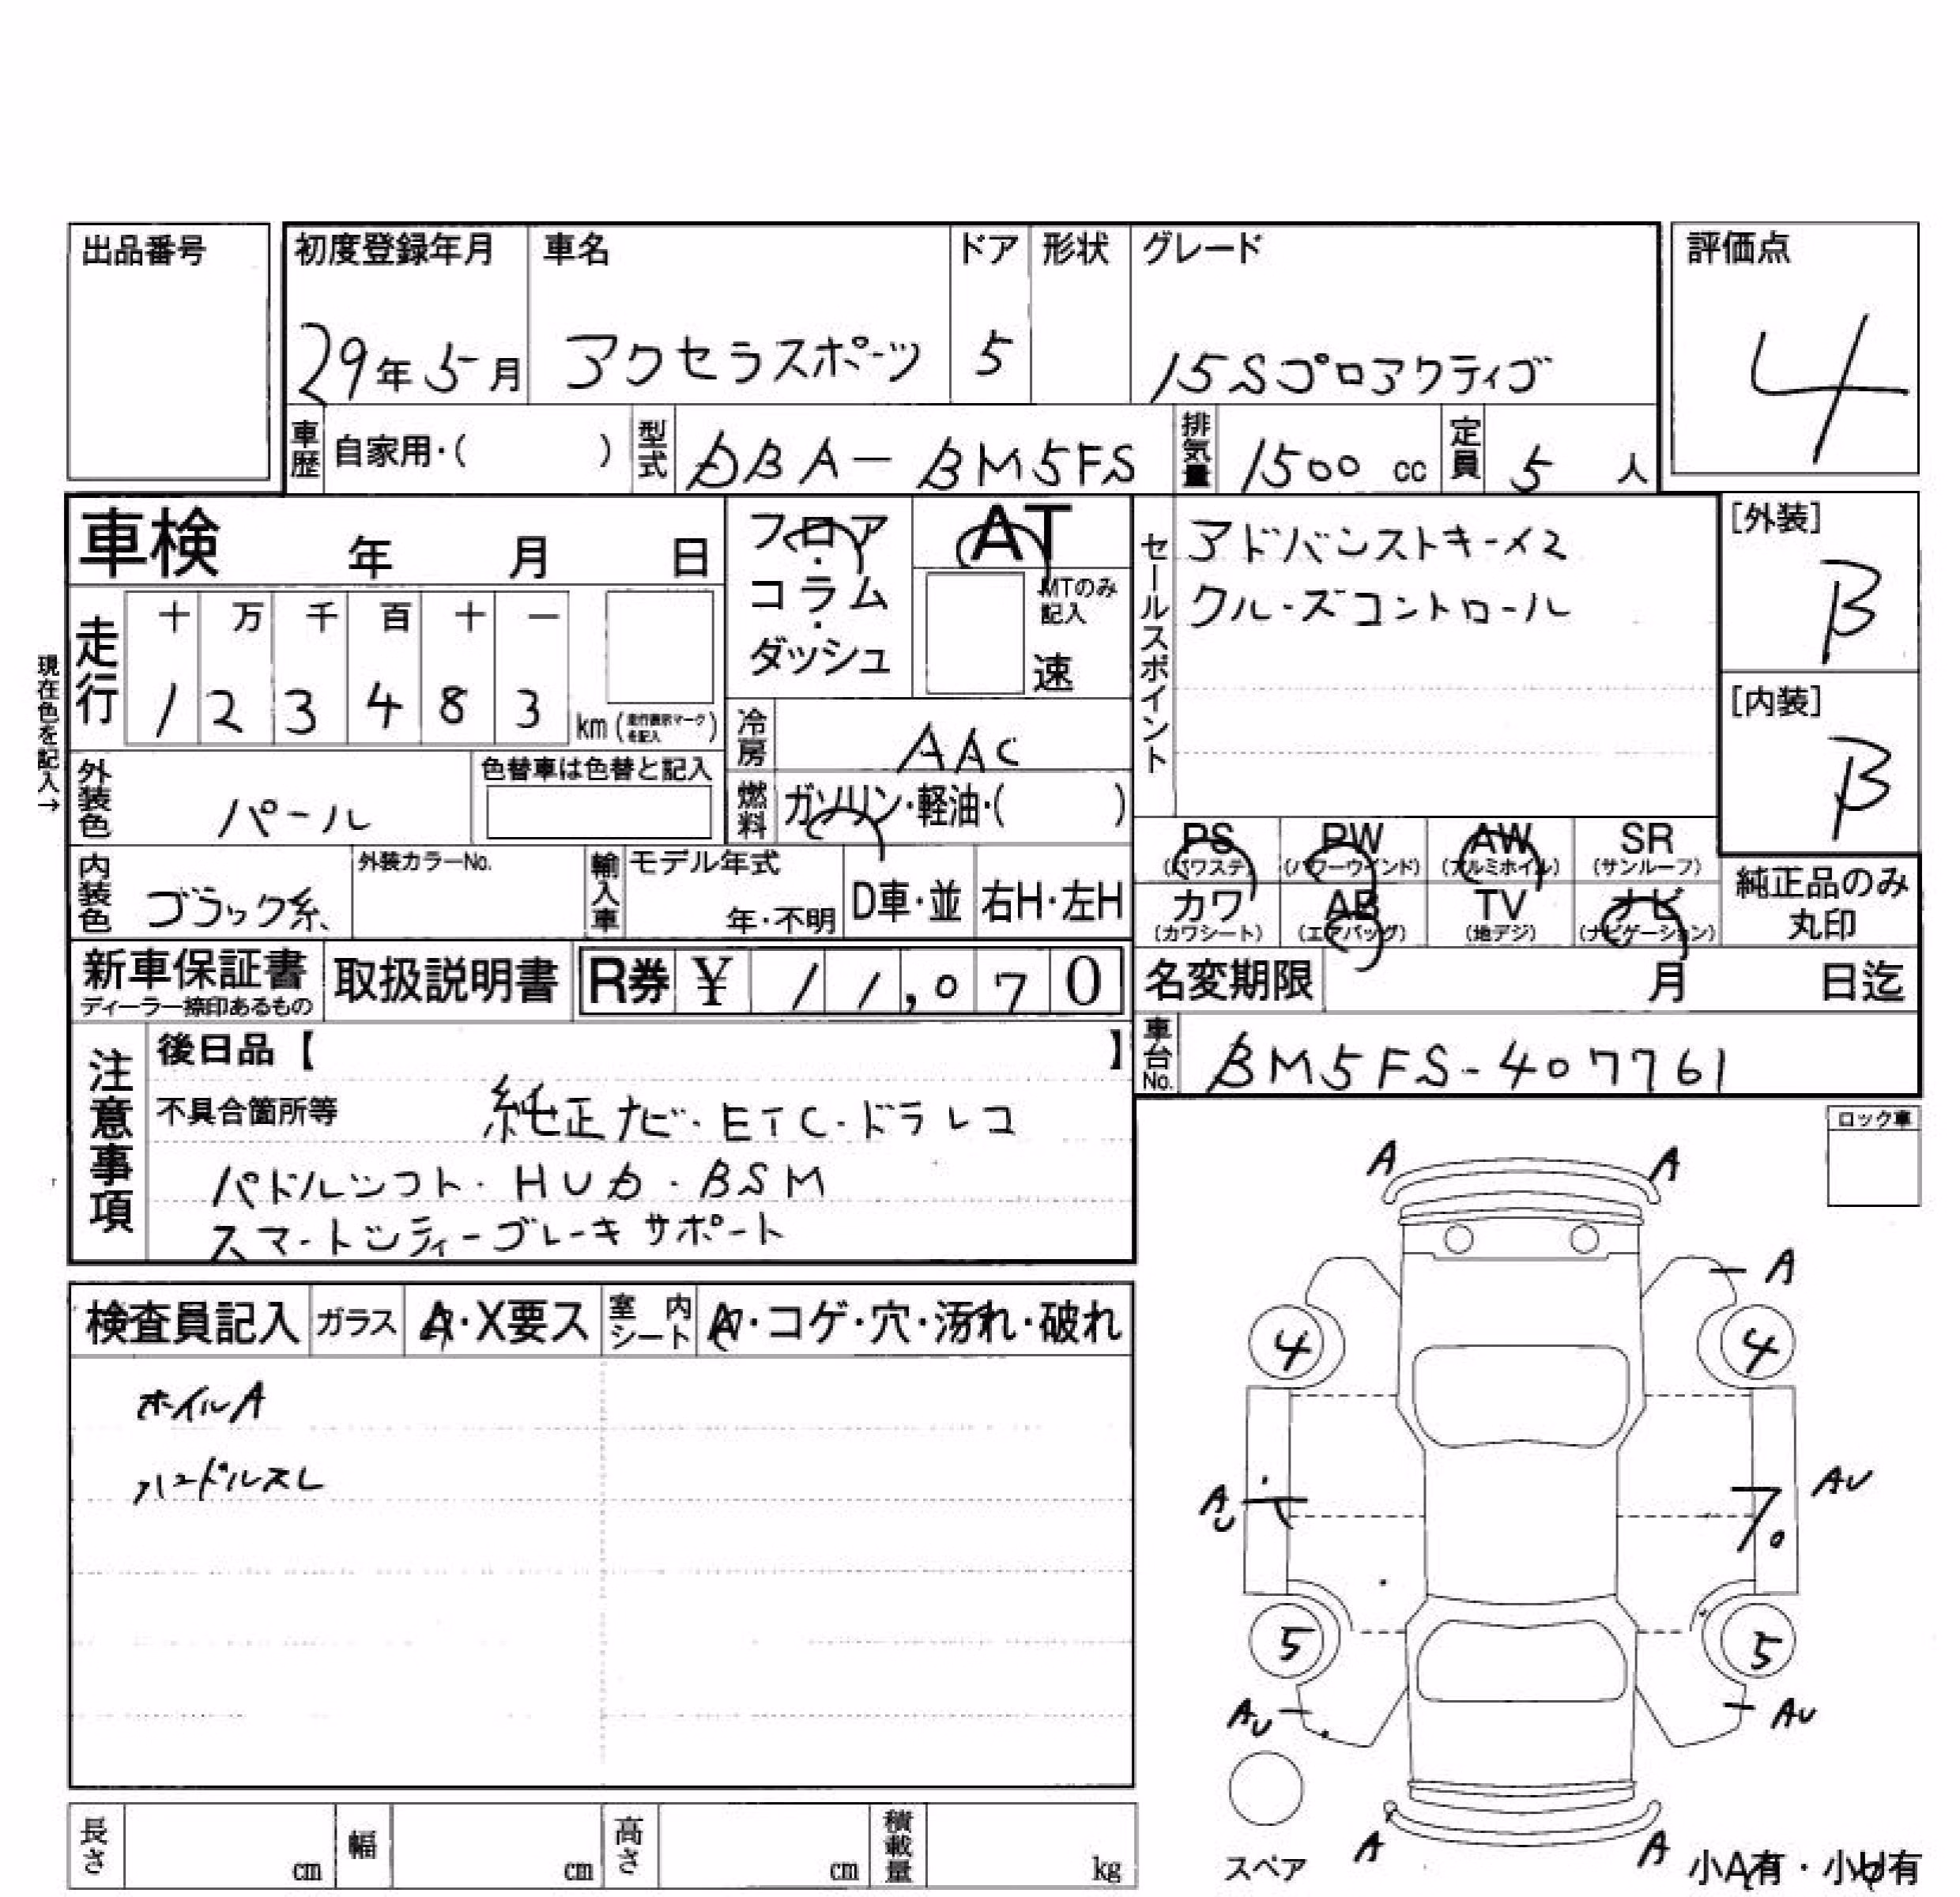 出品番号
初度登録年月 車名 ドア 形状 グレード 評価点
29年5月 アクセラスポーツ 5 15Sプロアクティブ 4
車歴 自家用・( ) 型式 DBA-BM5FS 排気量 1500 cc 定員 5 人
車検 年 月 日
フロア・コラム・ダッシュ
AT
MTのみ記入
速
セールスポイント
アドバンストキーメ2
クルーズコントロール
[外装]
B
[内装]
B
現在色を記入→
走行 十 万 千 百 十 一
1 2 3 4 8 3 km (走行表示マークを記入)
冷房 AAC
外装色 パール 色替車は色替と記入
燃料 ガソリン・軽油・( )
PS (パワステ) PW (パワーウインド) AW (アルミホイル) SR (サンルーフ)
カワ (カワシート) AB (エアバッグ) TV (地デジ) ナビ (ナビゲーション)
純正品のみ丸印
内装色 ブラック系 外装カラーNo. 輸入車 モデル年式 年・不明 D車・並 右H・左H
新車保証書 ディーラー捺印あるもの 取扱説明書 R券 ¥ 11,070
名変期限 月 日迄
車台No. BM5FS-407761
注意事項
後日品【 】
不具合箇所等 純正ナビ・ETC・ドラレコ
パドルシフト・HUD・BSM
スマートシティーブレーキサポート
ロック車
検査員記入 ガラス A・X要ス 室内シート A・コゲ・穴・汚れ・破れ
ホイルA
ハンドルスレ
A A
A
4 4
AU AU
5 5
AU AU
スペア A A 小A有・小U有
長さ cm 幅 cm 高さ cm 積載量 kg